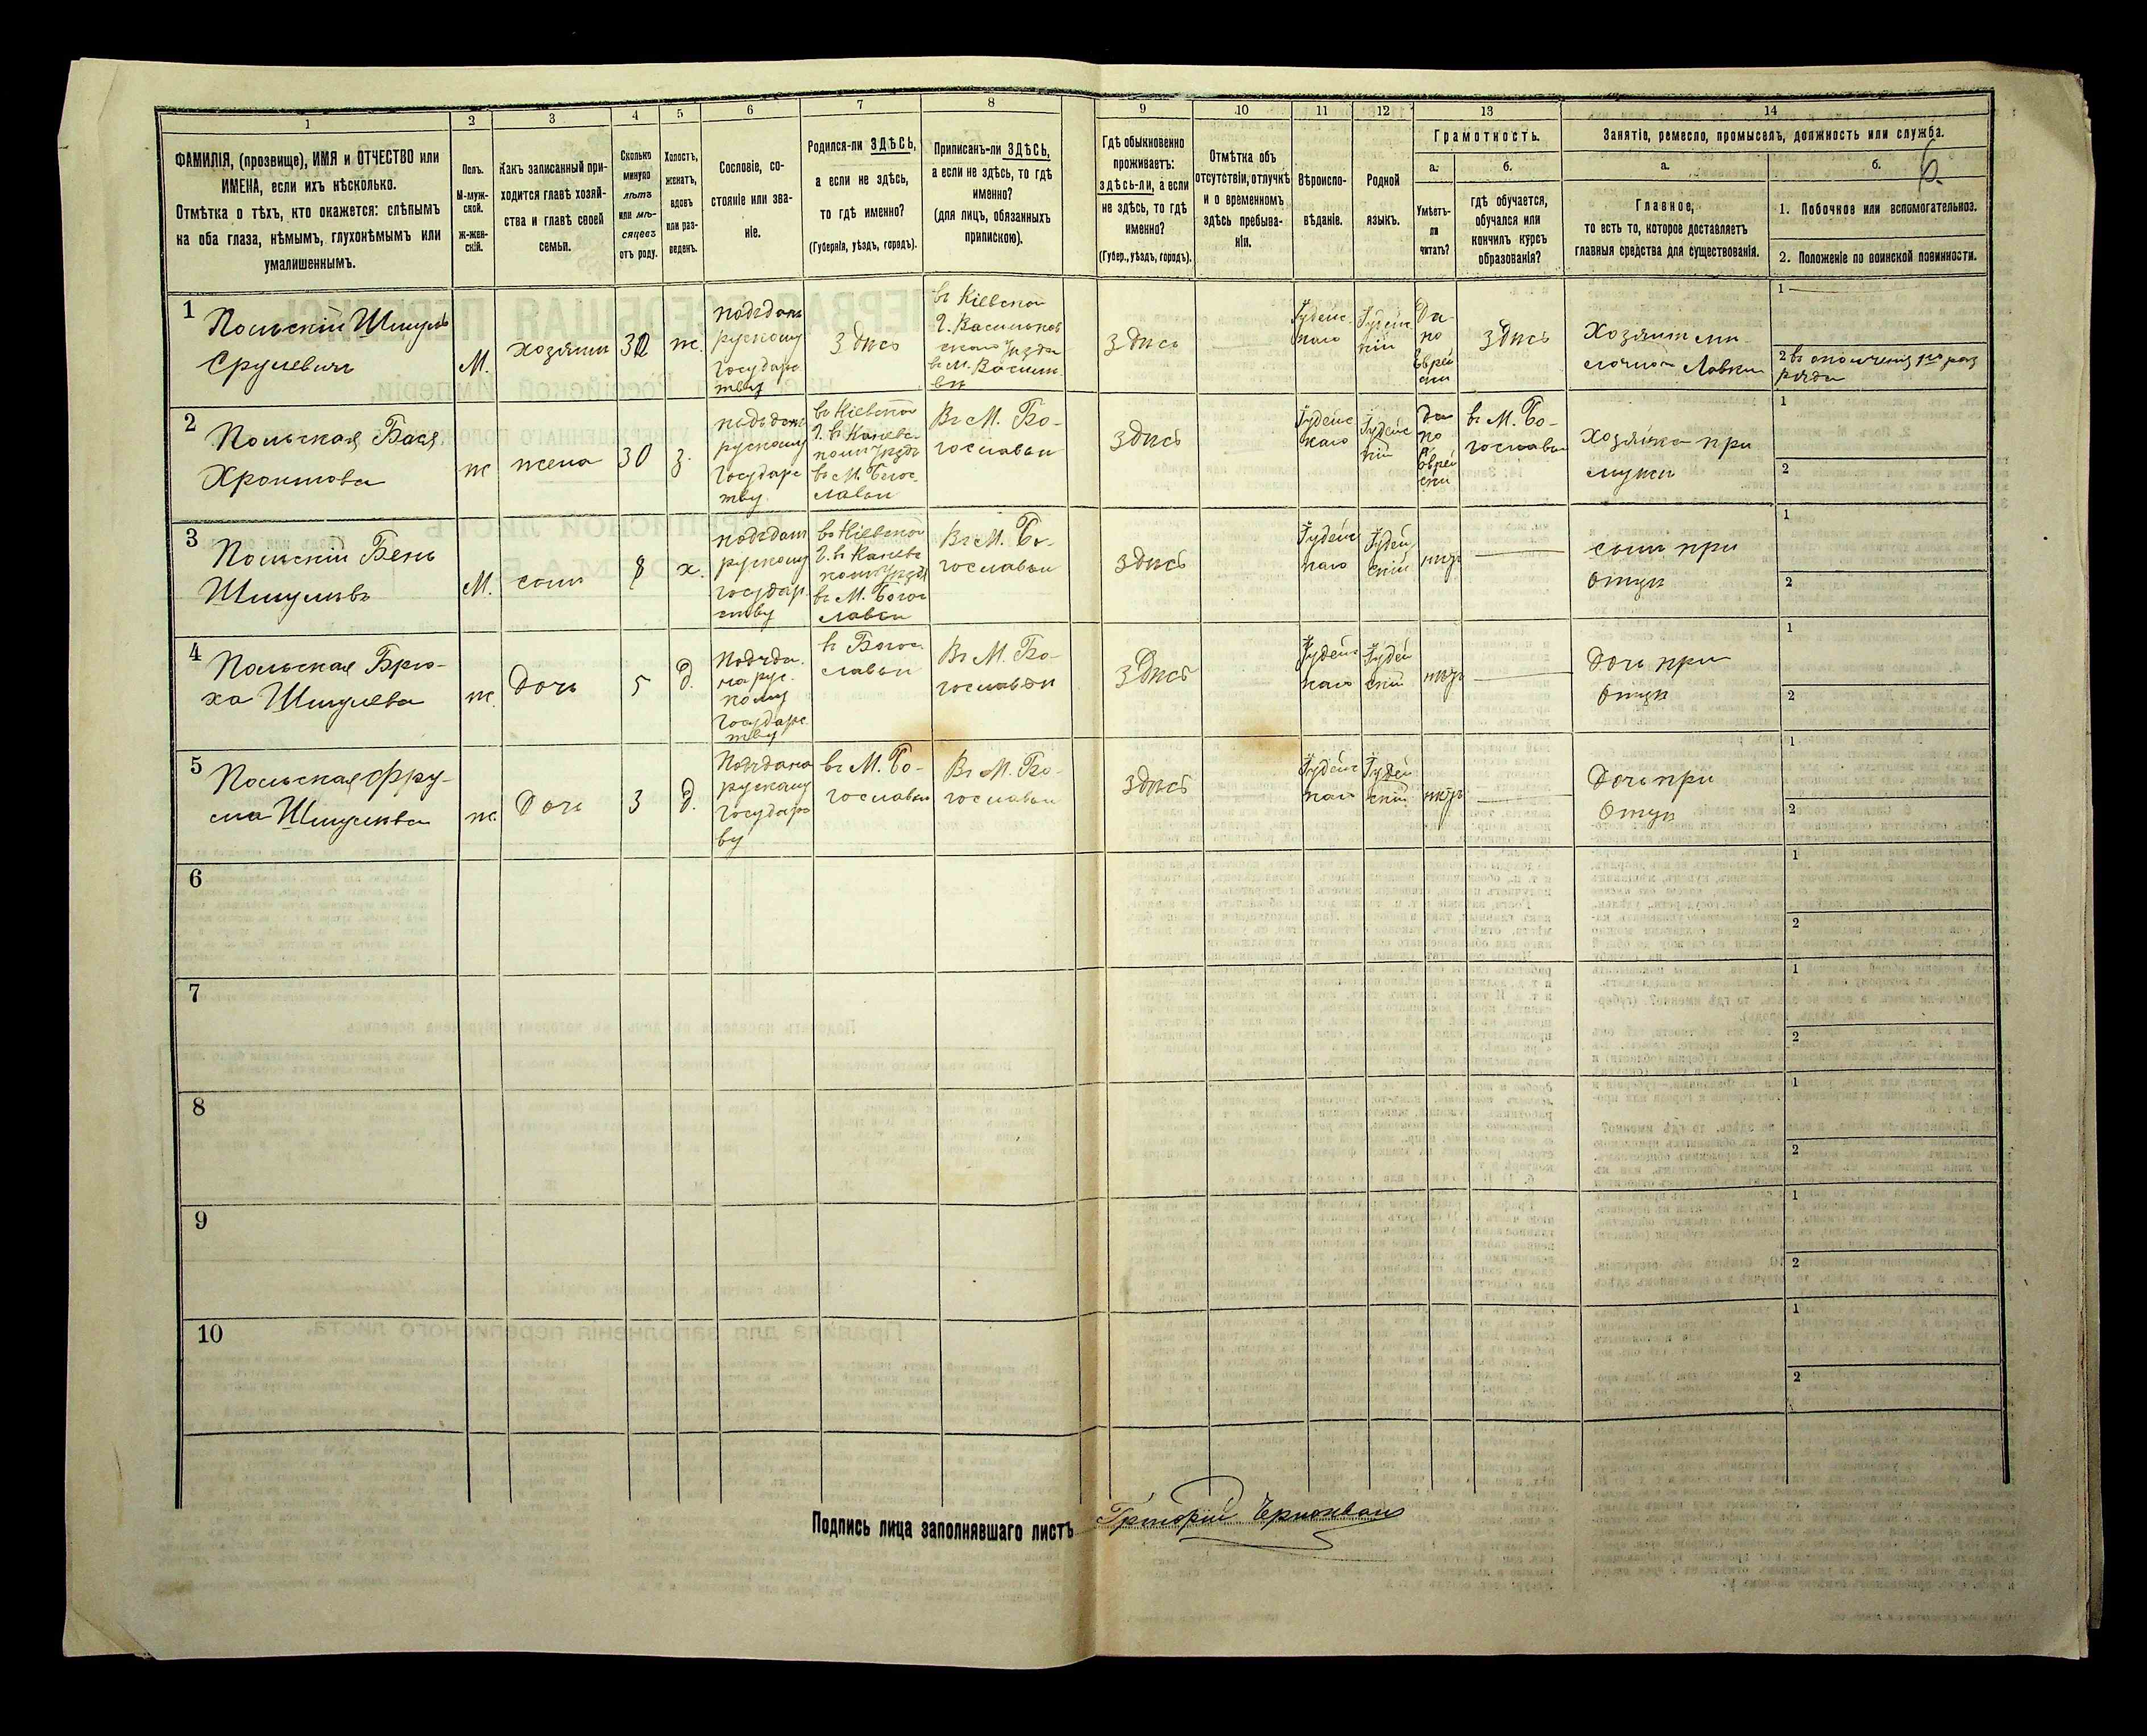 1
2
3
4
5
6
7
8
9
10
11
12
13
14
ФАМИЛІЯ, (прозвище), ИМЯ и ОТЧЕСТВО или
ИМЕНА, если ихъ нѣсколько.
Отмѣтка о тѣхъ, кто окажется: слѣпымъ
на оба глаза, нѣмымъ, глухонѣмымъ или
умалишеннымъ.
Полъ.
М-муж-
ской.
ж-жен-
скій.
Какъ записанный при-
ходится главѣ хозяй-
ства и главѣ своей
семьи.
Сколько
минуло
лѣтъ
или мѣ-
сяцевъ
отъ роду.
Холостъ,
женатъ,
вдовъ
или раз-
веденъ.
Сословіе, со-
стояніе или зва-
ніе.
Родился-ли ЗДѢСЬ,
а если не здѣсь,
то гдѣ именно?
(Губернія, уѣздъ, городъ).
Приписанъ-ли ЗДѢСЬ,
а если не здѣсь, то гдѣ
именно?
(для лицъ, обязанныхъ
припискою).
Гдѣ обыкновенно
проживаетъ:
здѣсь-ли, а если
не здѣсь, то гдѣ
именно?
(Губер., уѣздъ, городъ).
Отмѣтка объ
отсутствіи, отлучкѣ
и о временномъ
здѣсь пребыва-
ніи.
Вѣроиспо-
вѣданіе.
Родной
языкъ.
Грамотность.
а.
Умѣетъ-
ли
читать?
б.
гдѣ обучается,
обучался или
кончилъ курсъ
образованія?
Занятіе, ремесло, промыселъ, должность или служба.
а.
Главное,
то есть то, которое доставляетъ
главныя средства для существованія.
б.
6.
1. Побочное или вспомогательное.
2. Положеніе по воинской повинности.
1
Польскій Шмуль
Срулевичъ
М.
хозяинъ
32
ж.
подъдан
рускому
Государс
тву
Здись
въ Кіевской
Г. Васильков
скаго Уѣзда
въ М.
Здись
Іудейс
каго
Іудейс
кій
Да
по
Еврей
ски
Здись
Хозяинъ
Лавки
1
2
2
Польская Бася
Хроимова
ж
жена
30
з.
подъдан
рускому
Государс
тву
въ Кіевской
Г. въ Каневс
комъ Уѣздѣ
въ М. Богос
лавки
Въ М. Бо-
гославки
Здись
Іудейс
каго
Іудейс
кій
Да
по
Еврей
ски
въ М. Бо-
гославки
Хозяйка при
мужи
1
2
3
Польскій Бень
Шмулевъ
М.
сынъ
8
х.
подъдан
рускому
государ
ству
въ Кіевской
Г. въ Каневс
комъ Уѣздѣ
въ М. Богос
лавки
Въ М. Бо-
гославки
Здись
Іудейс
каго
Іудей
скій
нѣтъ
сынъ при
отци
1
2
4
Польская Брю-
ха Шмулева
ж.
Дочь
5
д.
Подъда
на рус-
кому
Государс
тву
въ Богос
лавки
Въ М. Бо-
гославки
Здись
Іудейс
каго
Іудей
скій
нѣтъ
Дочь при
отци
1
2
5
Польская Фру-
ма Шмулева
ж.
Дочь
3
д.
Подъдана
рускому
Государс
ву
въ М. Бо-
гославки
Въ М. Бо-
гославки
Здись
Іудейс
каго
Іудей
скій
нѣтъ
Дочь при
Отци
1
2
6
1
2
7
1
2
8
1
2
9
1
2
10
1
2
Подпись лица заполнявшаго листъ Григорій